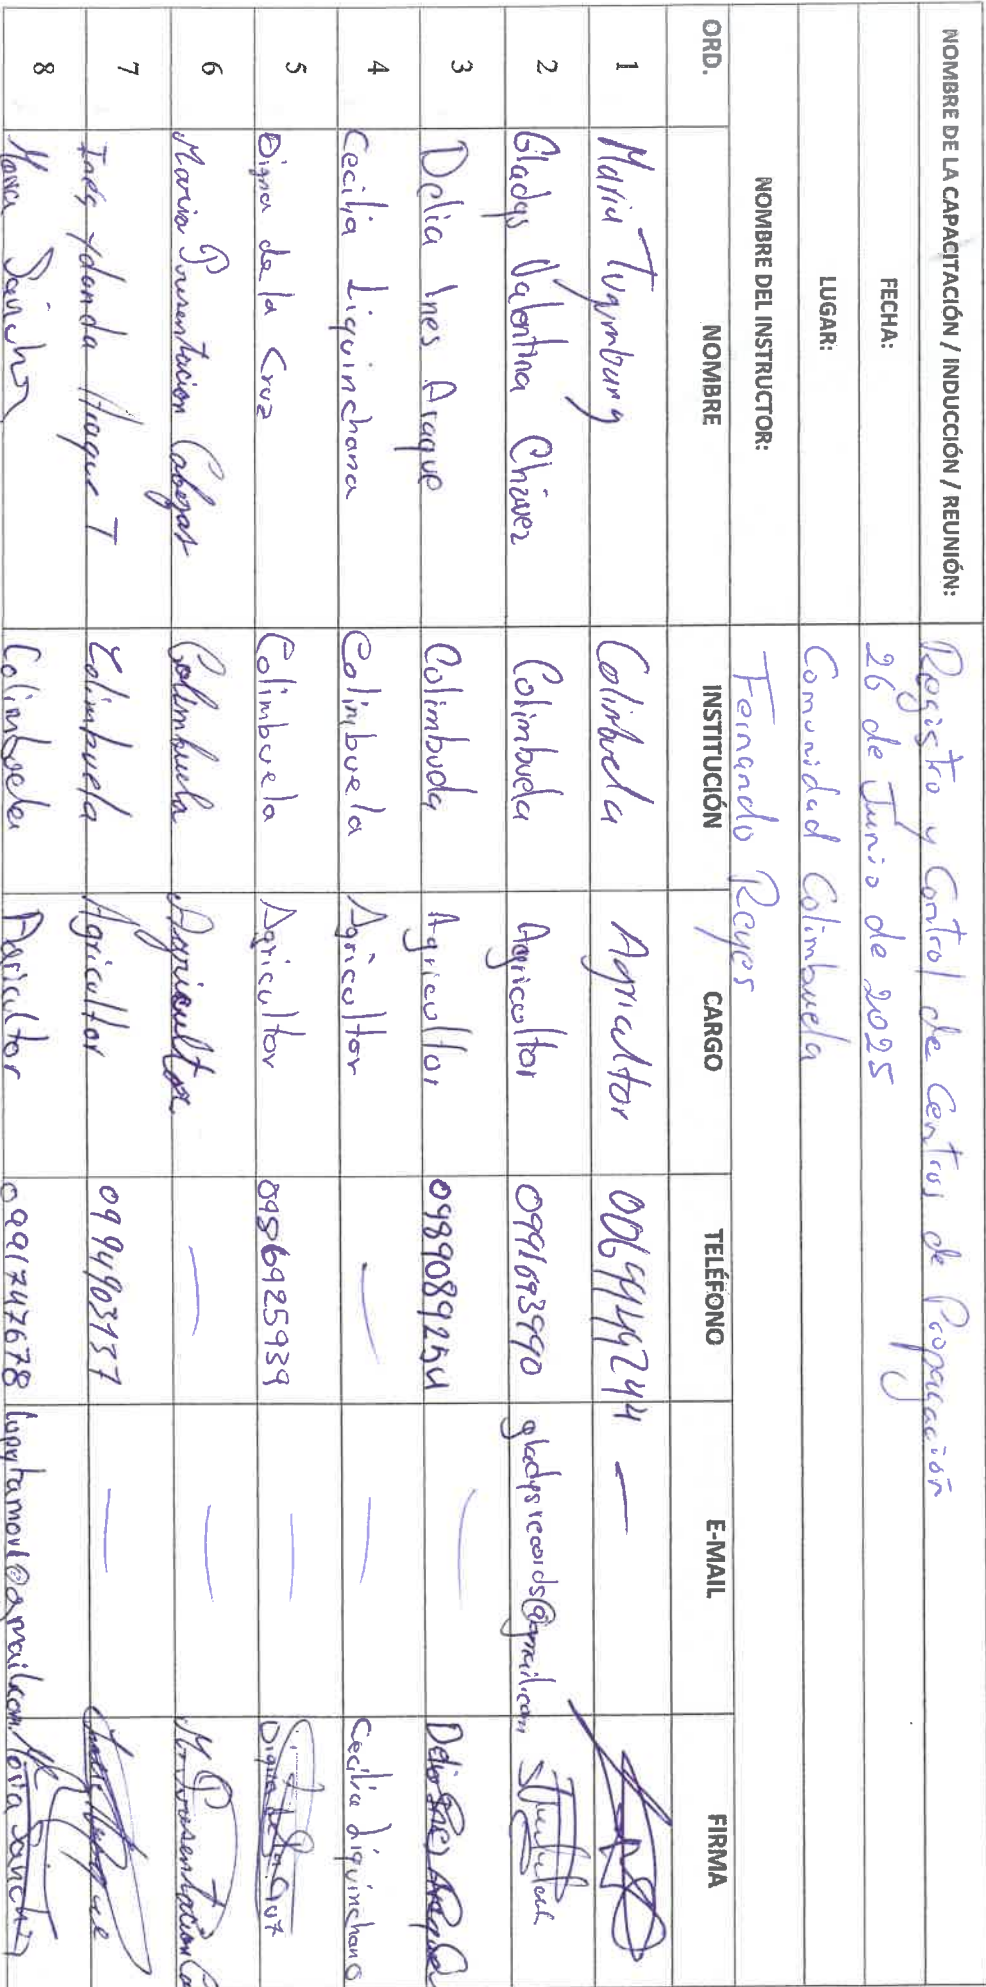 NOMBRE DE LA CAPACITACIÓN / INDUCCIÓN / REUNIÓN: Registro y Control de Centros de Propagación
FECHA: 26 de Junio de 2025
LUGAR: Comunidad Colimbuela
NOMBRE DEL INSTRUCTOR: Fernando Reyes
ORD. NOMBRE INSTITUCIÓN CARGO TELÉFONO E-MAIL FIRMA
1 Maria Colimbuela Agricultor —
2 Gladys Valentina Chávez Colimbuela Agricultor 0991693990 gladysrecords@gmail.com
3 Delia Ines Araque Colimbuela Agricultor 0989089254 — Delia Ines Araque
4 Cecilia Liquinchana Colimbuela Agricultor — — Cecilia Liquinchana
5 Digna de la Cruz Colimbuela Agricultor 0986925939 — Digna de la Cruz
6 Maria Presentacion Cabezas Colimbuela Agricultor — — M. Presentacion
7 Inés Yolanda Colimbuela Agricultor 0994903137 —
8 Colimbuela Agricultor 0991747678